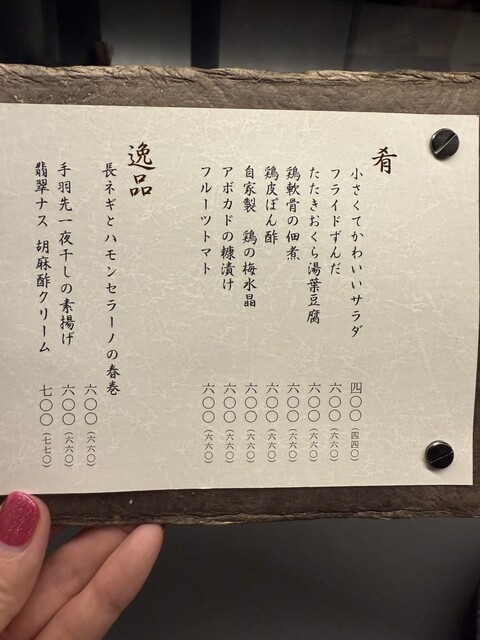 肴
小さくてかわいいサラダ 四〇〇（四四〇）
フライドずんだ 六〇〇（六六〇）
たたきおくら湯葉豆腐 六〇〇（六六〇）
鶏軟骨の佃煮 六〇〇（六六〇）
鶏皮ぽん酢 六〇〇（六六〇）
自家製 鶏の梅水晶 六〇〇（六六〇）
アボカドの糠漬け 六〇〇（六六〇）
フルーツトマト 六〇〇（六六〇）
逸品
長ネギとハモンセラーノの春巻 六〇〇（六六〇）
手羽先一夜干しの素揚げ 六〇〇（六六〇）
翡翠ナス 胡麻酢クリーム 七〇〇（七七〇）